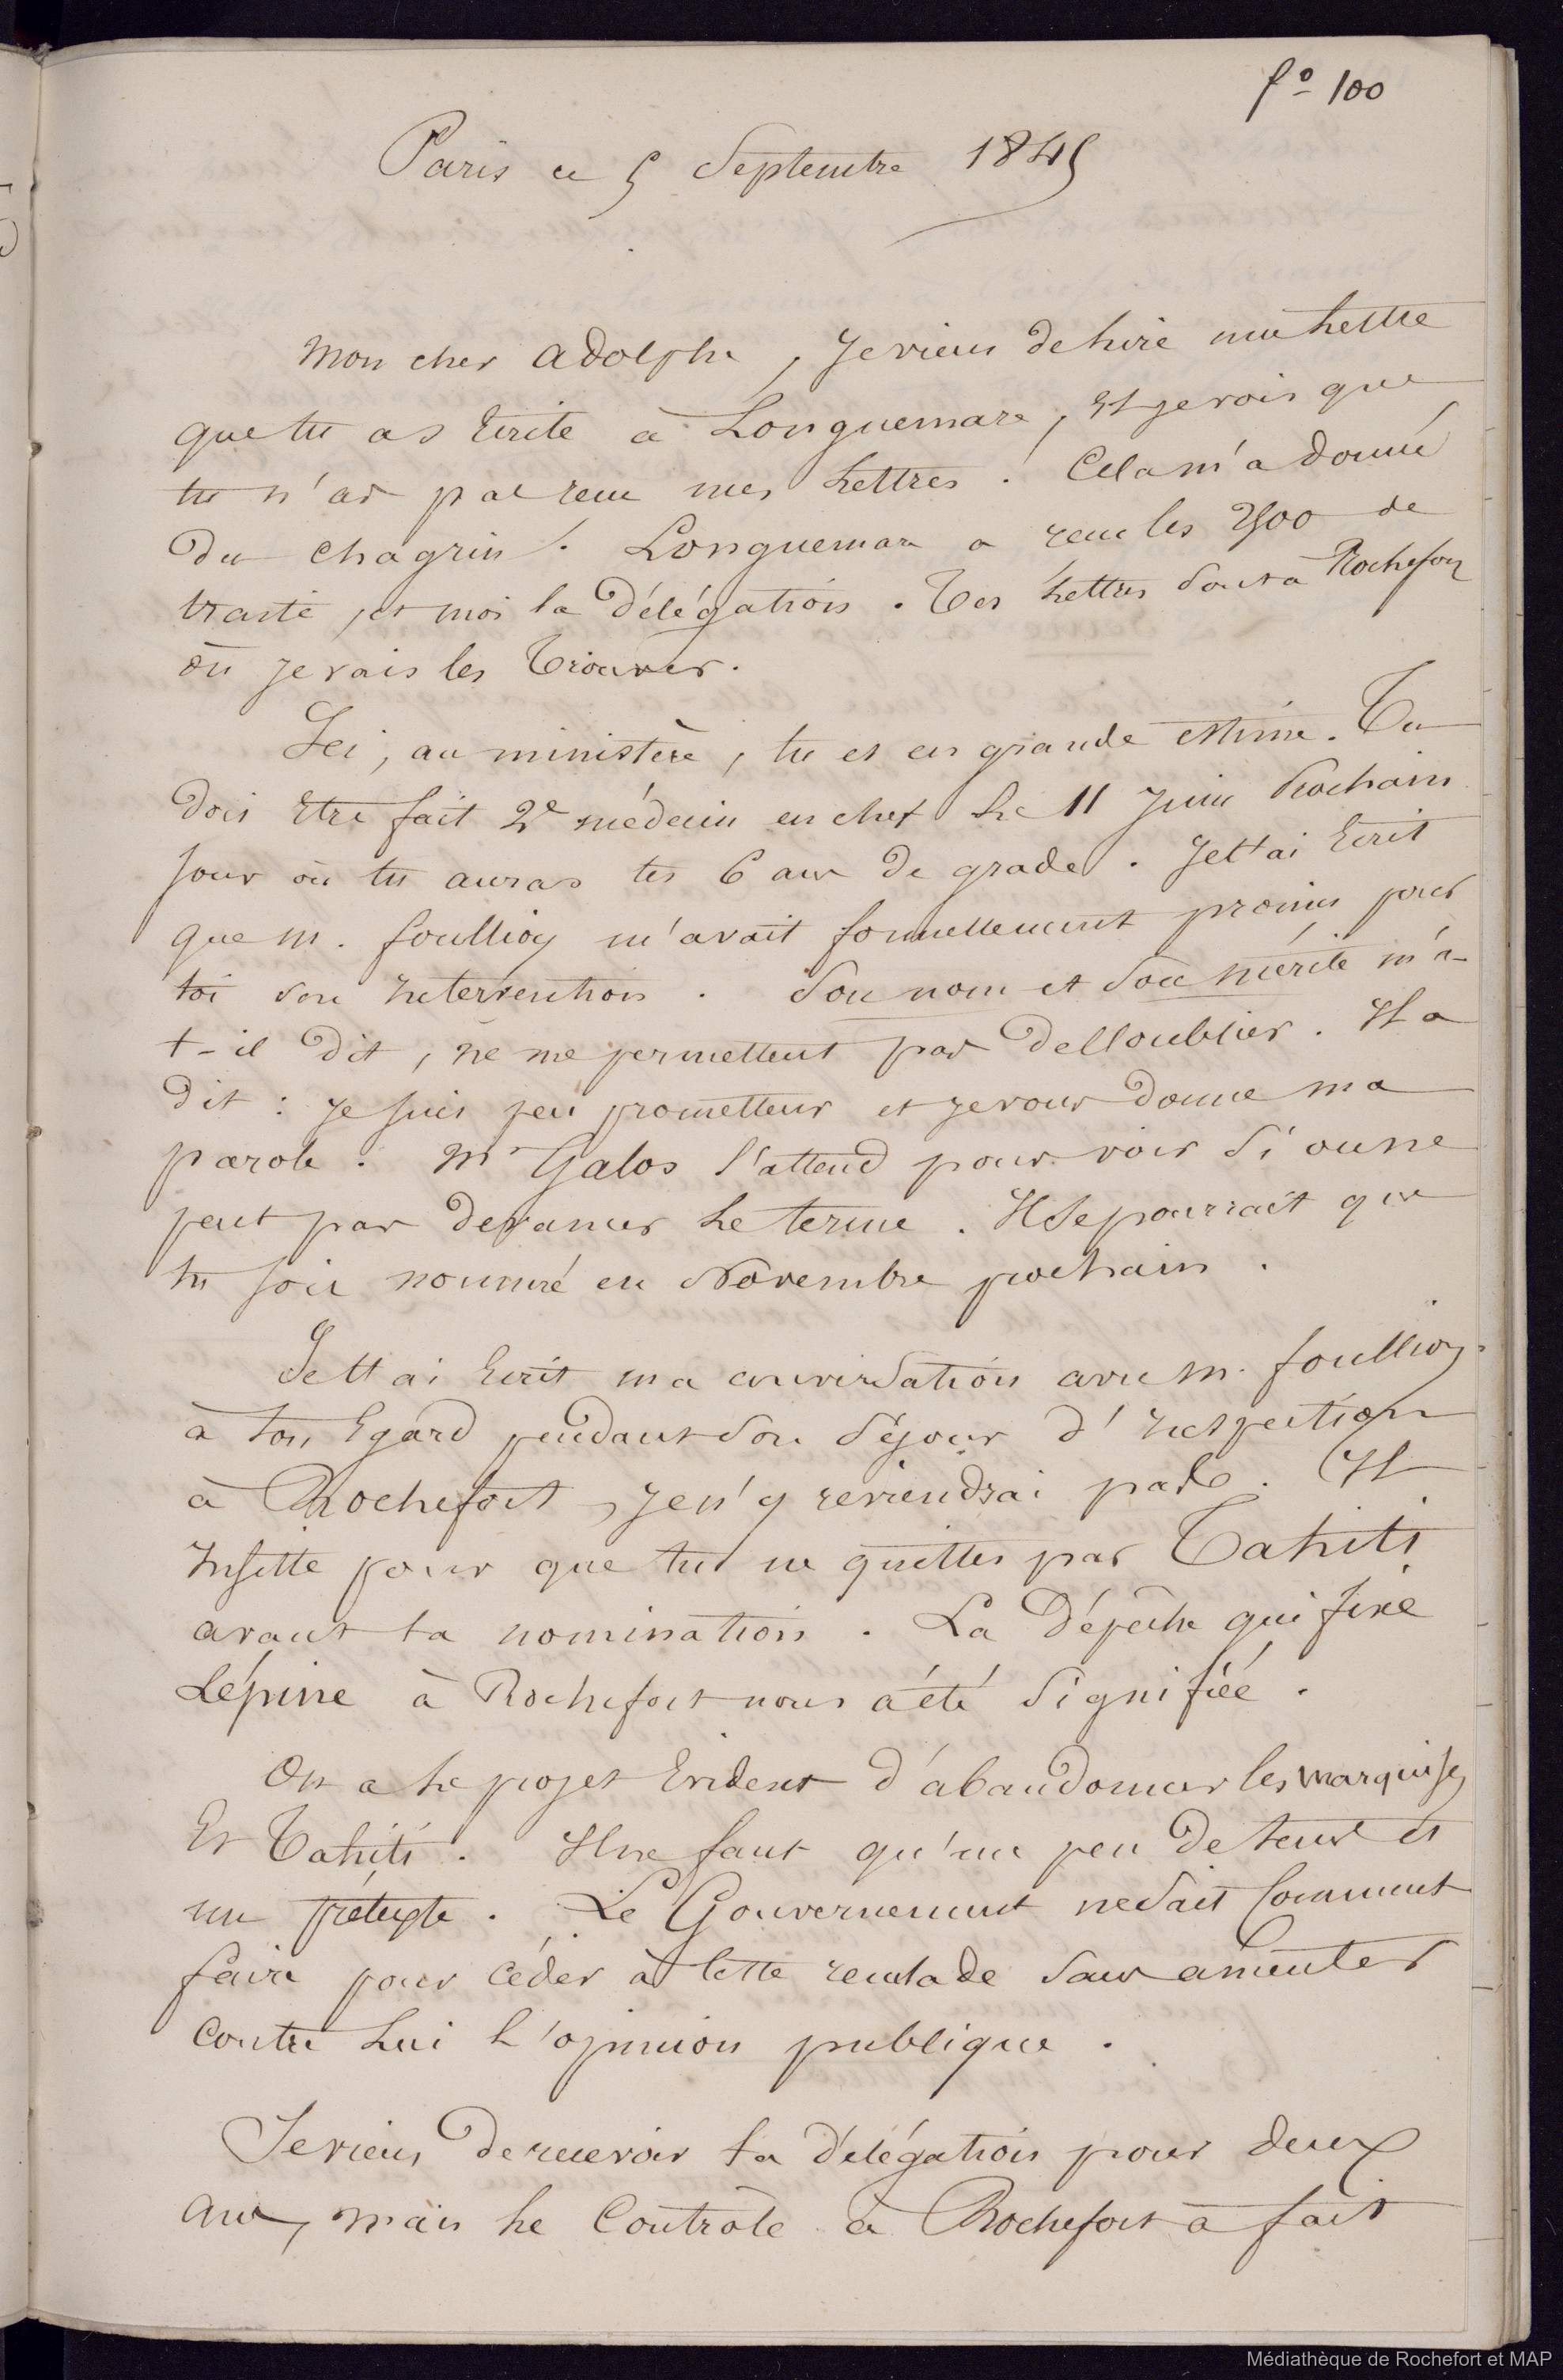 fº 100
Paris ce 5 Septembre 1845
Mon cher Adolphe, Je viens de lire une lettre
que tu as Ecrite à Longuemare, Et je vois que
tu n'as pas recu mes lettres. Cela m'a donné
du chagrin. Longuemare a recu les 2500 de
traite, et moi la délégation. Tes lettres sont à Rochefort
où je vais les Trouver.
Ici, au ministère, tu es en grande estime. Tu
dois Etre fait 2e médecin en chef le 11 Juin Prochain
jour où tu auras tes 6 ans de grade. Je t'ai Ecrit
que M. foullioy m'avait formellement promis pour
toi son Intervention. Son nom et son mérite m'a-
t-il dit, ne me permettent pas de l'oublier. Il a
dit : je suis peu prometteur et je vous donne ma
parole. Mr Galos l'attend pour voir si on ne
peut pas devancer le terme. Il se pourrait que
tu sois nommé en Novembre prochain.
Je t'ai Ecrit ma conversation avec M. foullioy
à ton Egard pendant son séjour d'Inspection
à Rochefort, je n'y reviendrai pas. Il
Insiste pour que tu ne quittes pas Tahiti
avant ta nomination. La dépêche qui fixe
Lépine à Rochefort nous a été signifiée.
On a le projet Evident d'abandonner les Marquises
Et Tahiti. Il ne faut qu'un peu de tems et
un prétexte. Le Gouvernement ne sait Comment
faire pour céder à Cette reculade sans ameuter
Contre Lui l'opinion publique.
Je viens de recevoir ta délégation pour deux
ans, mais le Contrôle à Rochefort a fait
Médiathèque de Rochefort et MAP